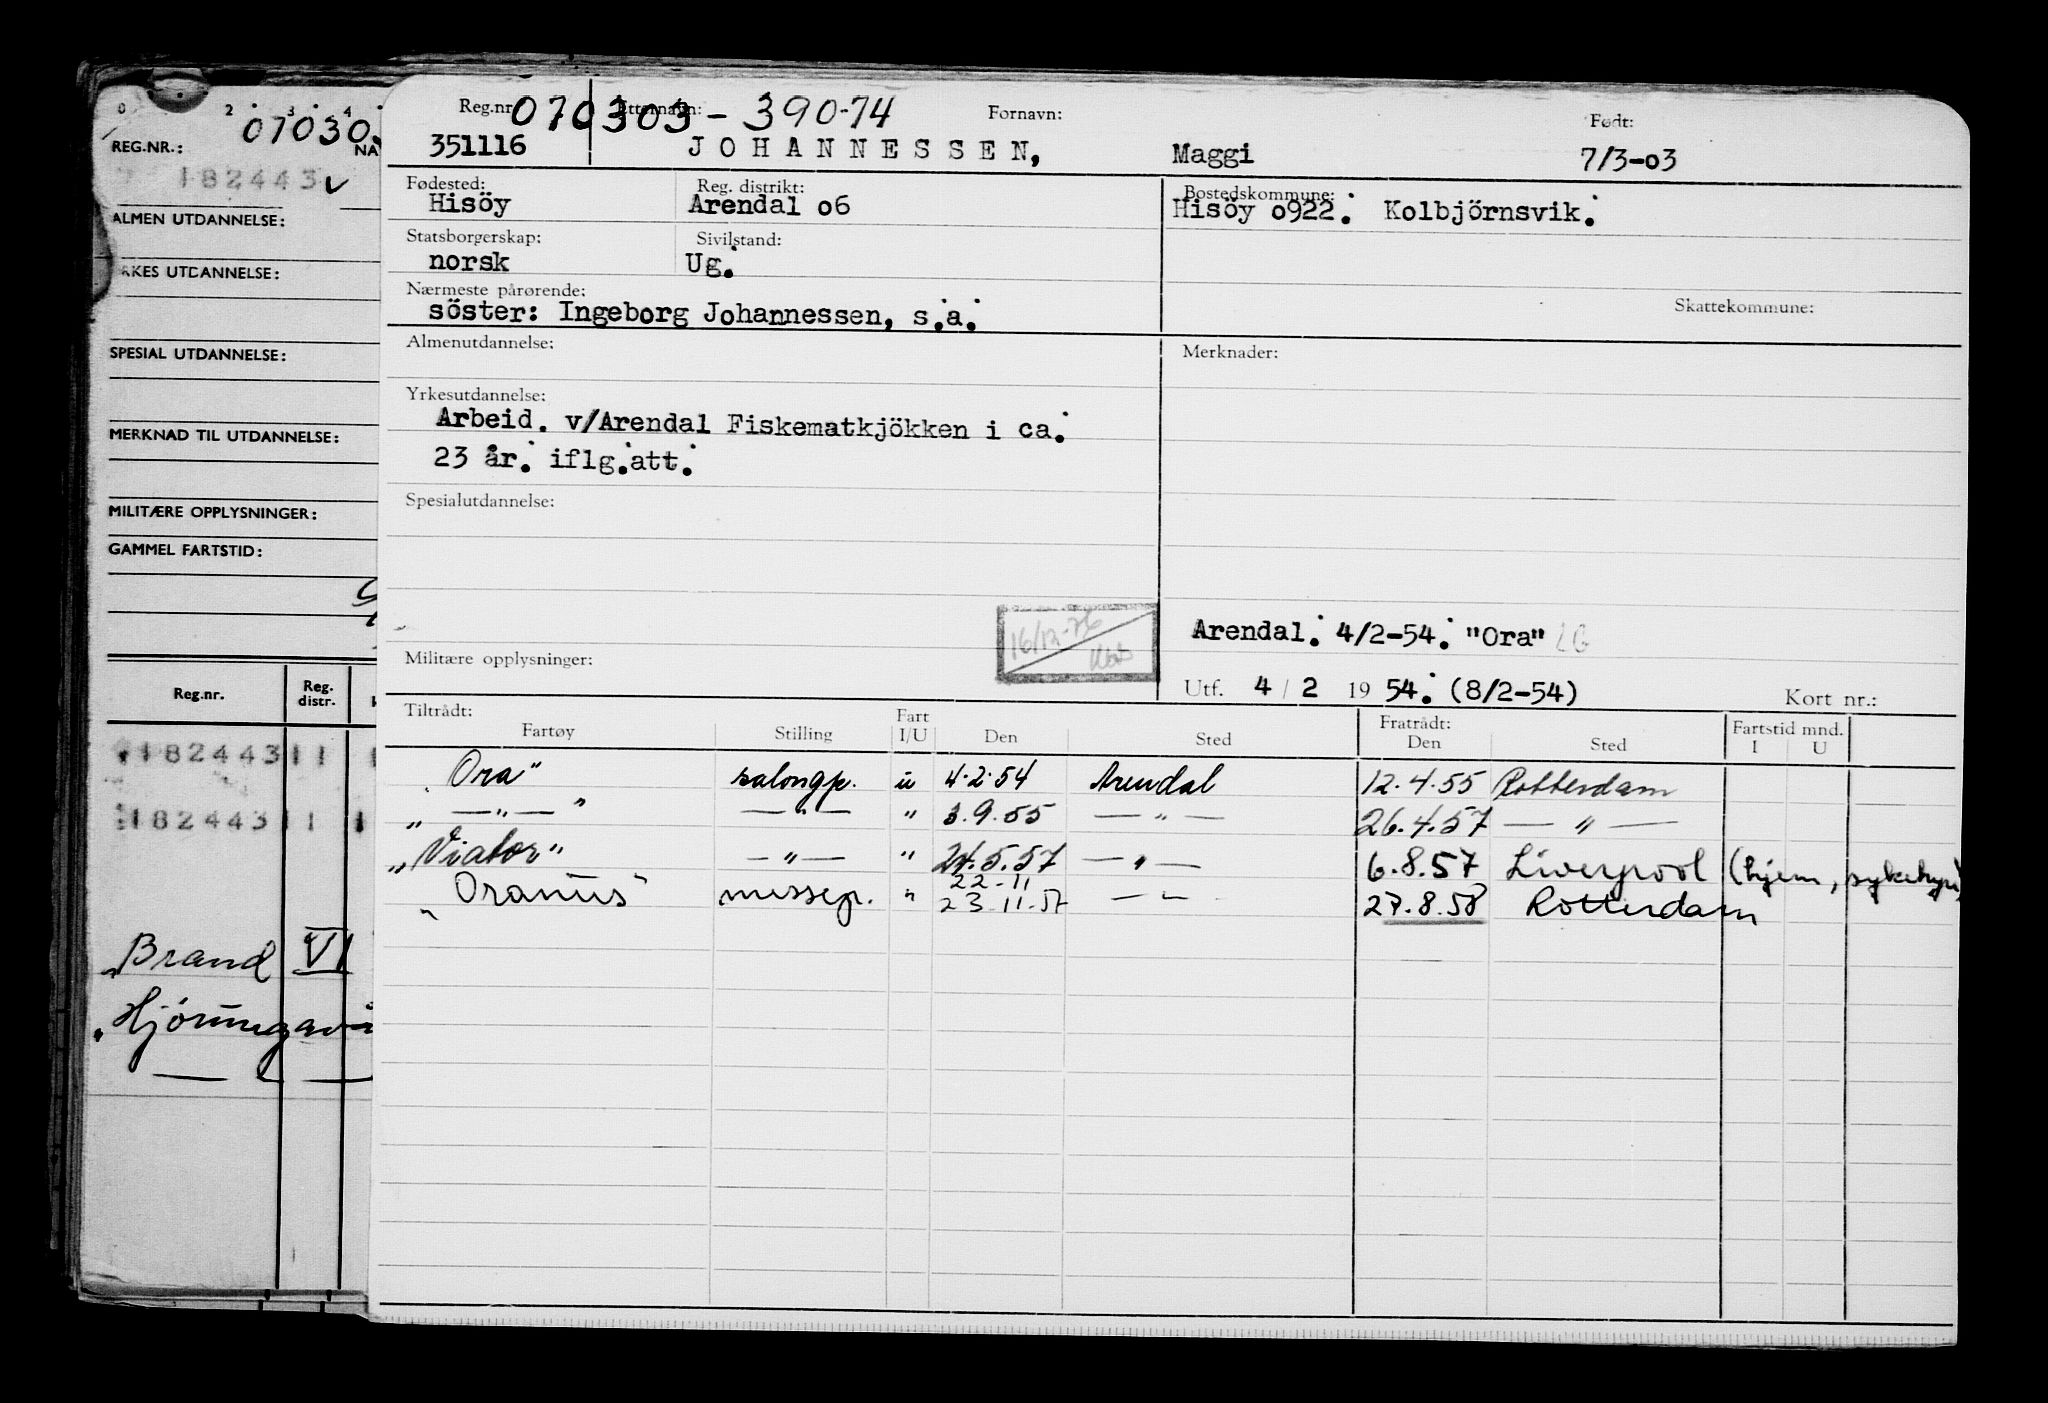 0 2 3 4
070303
REG.NR.: NA
182443 v
ALMEN UTDANNELSE:
RKES UTDANNELSE:
SPESIAL UTDANNELSE:
MERKNAD TIL UTDANNELSE:
MILITÆRE OPPLYSNINGER:
GAMMEL FARTSTID:
Reg.nr. Reg. distr.
182443 11 1
182443 11 1
"Brand VI
"Hjörungavå
Reg.nr. 070303-390-74 Etternavn: Fornavn: Født:
351116 JOHANNESSEN, Maggi 7/3-03
Fødested: Reg. distrikt: Bostedskommune:
Hisöy Arendal 06 Hisöy 0922. Kolbjörnsvik.
Statsborgerskap: Sivilstand:
norsk Ug.
Nærmeste pårørende: Skattekommune:
söster: Ingeborg Johannessen, s.a.
Almenutdannelse: Merknader:
Yrkesutdannelse:
Arbeid. v/Arendal Fiskematkjökken i ca.
23 år. iflg.att.
Spesialutdannelse:
16/12-76
Arendal. 4/2-54. "Ora"
Militære opplysninger:
Utf. 4 / 2 19 54. (8/2-54) Kort nr.:
Tiltrådt: Fart Fratrådt: Fartstid mnd.
Fartøy Stilling I/U Den Sted Den Sted I U
"Ora" salongp. u 4.2.54 Arendal 12.4.55 Rotterdam
" — " — " — " — " 3.9.55 — " — 26.4.57 — " —
"Viator" — " — " 24.5.57 — " — 6.8.57 Liverpool (hjem, sykehus)
22-11
"Oranius" messep. " 23-11-57 — " — 27.8.58 Rotterdam